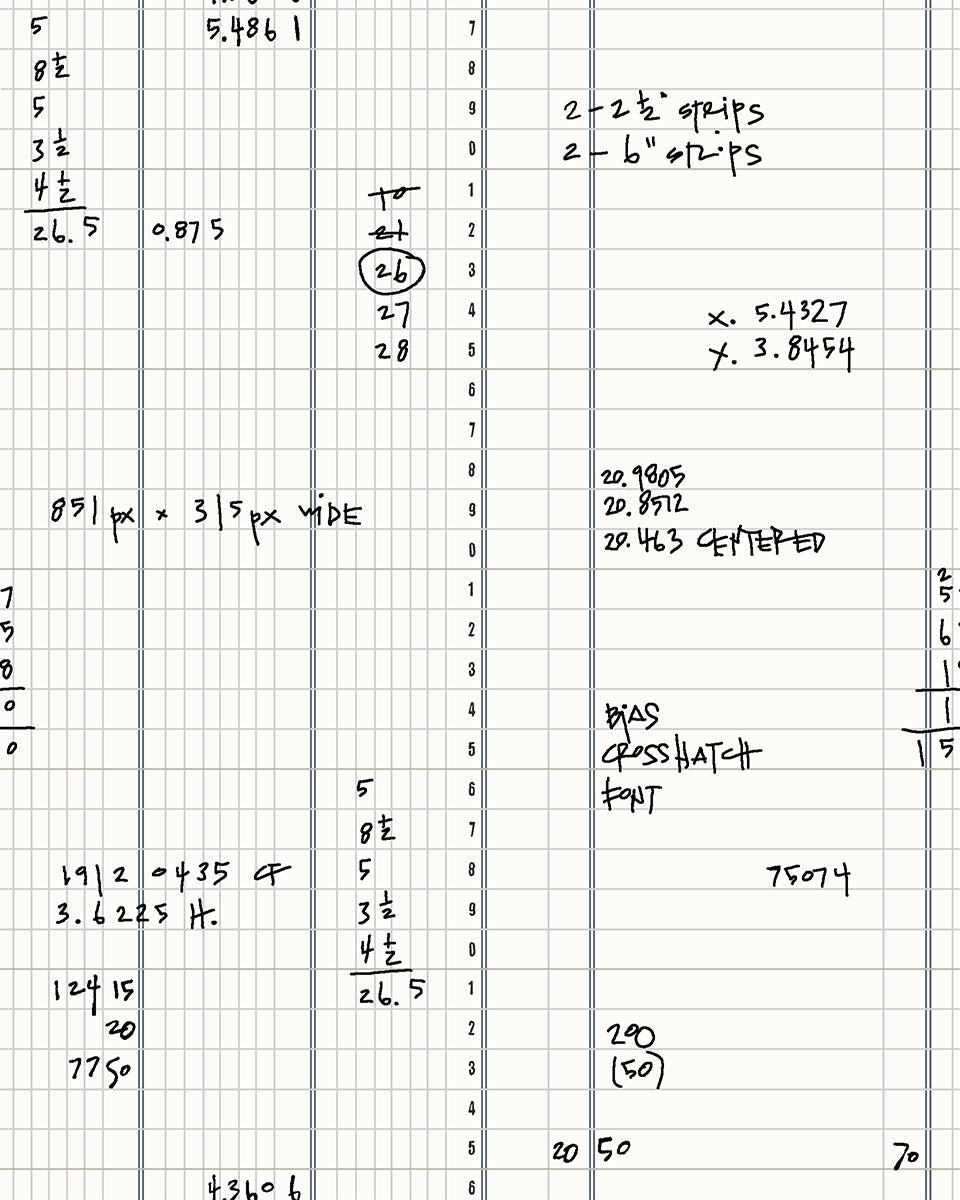 5
5.4861
8 1/2
5
3 1/2
4 1/2
26.5
0.875
10
21
26
27
28
7
8
9
0
1
2
3
4
5
6
7
8
9
0
1
2
3
4
5
6
7
8
9
0
1
2
3
4
5
6
2 - 2 1/2" strips
2 - 6" strips
x. 5.4327
y. 3.8454
851 px x 315 px WIDE
20.9805
20.8512
20.463 CENTERED
7
5
8
0
0
2
5
6
1
1
15
BIAS
CROSSHATCH
FONT
5
8 1/2
5
3 1/2
4 1/2
26.5
1912 0435 CF
3.6225 H.
75074
12415
20
7750
200
(50)
20 50
70
4.3606